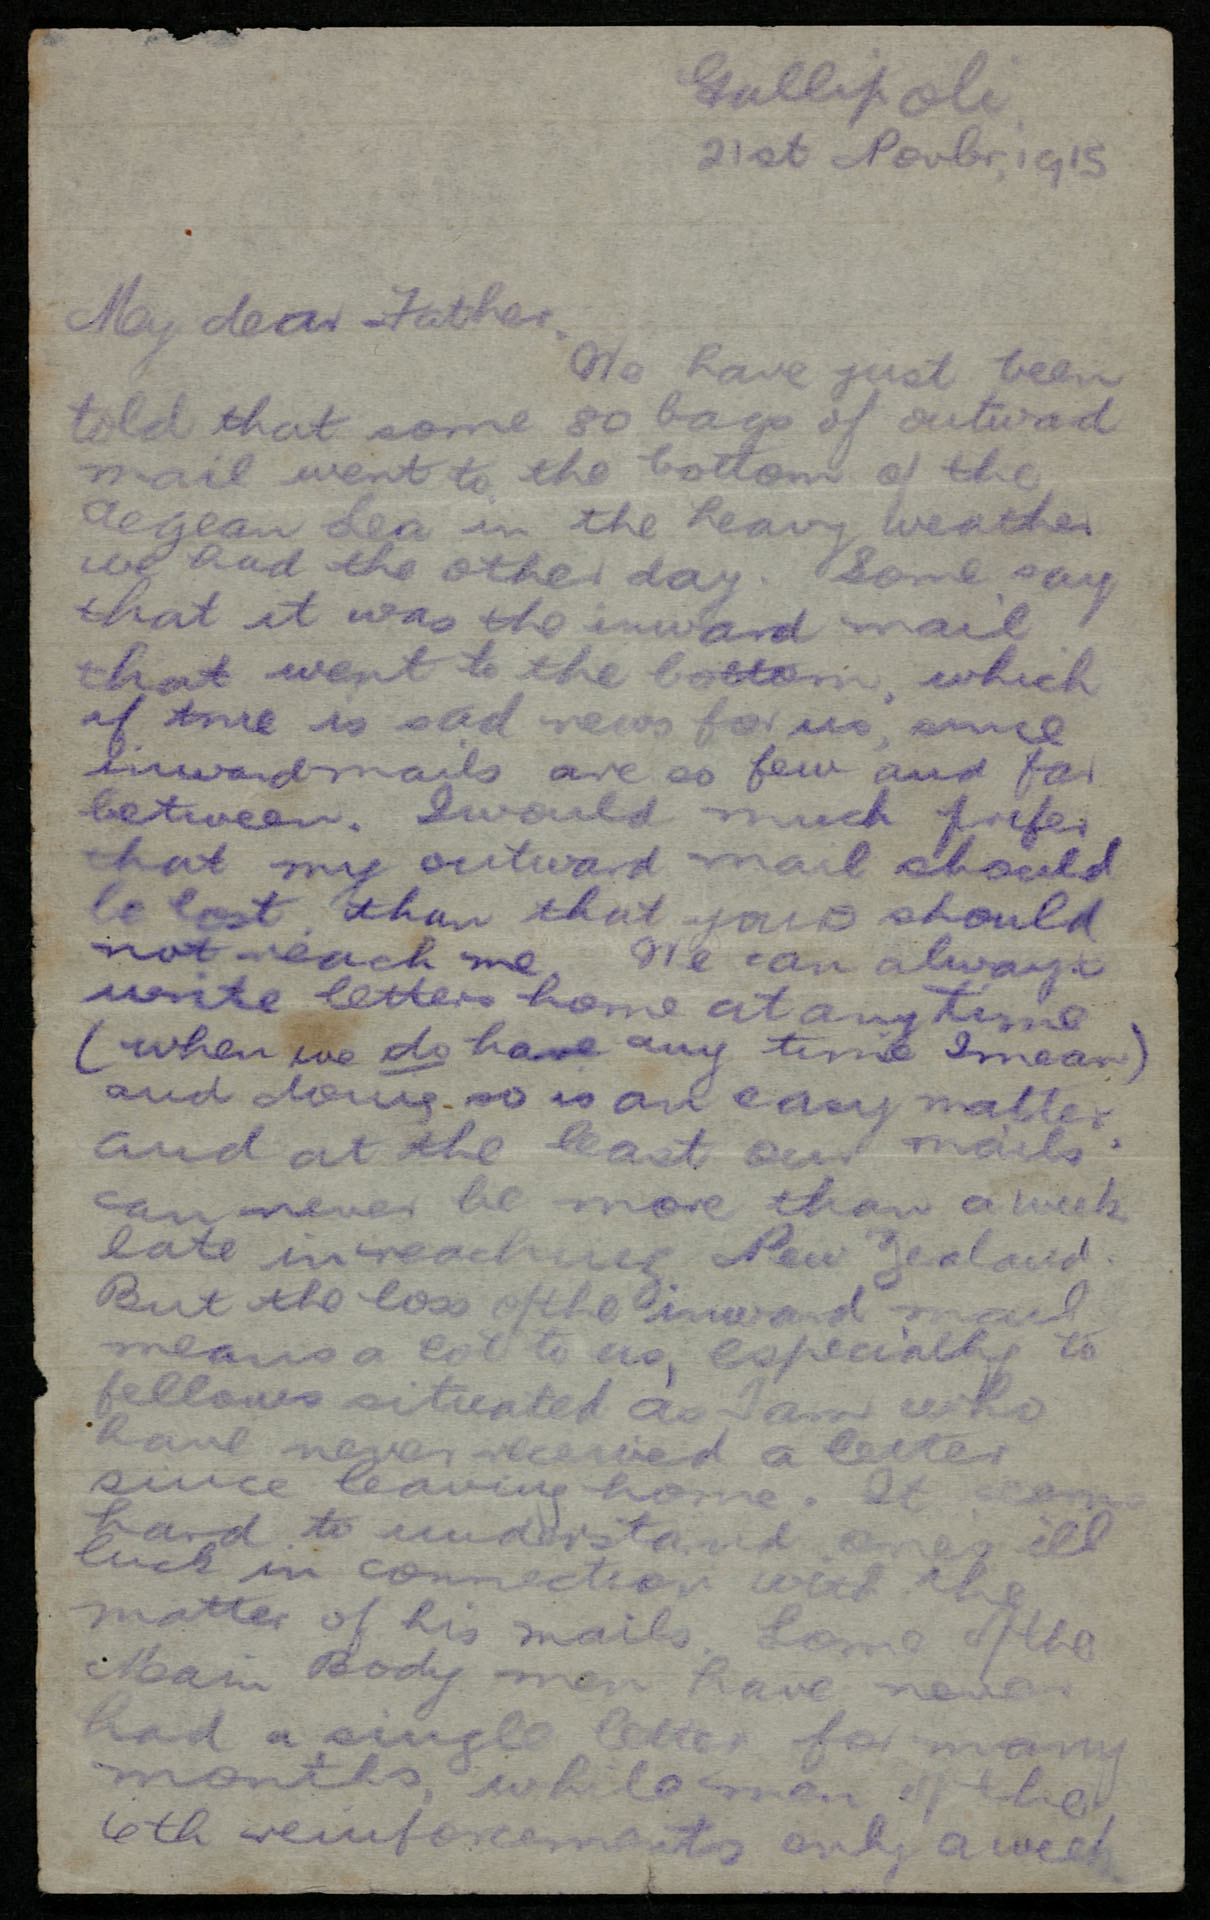 Gallipoli,
21st Novbr, 1915
My dear Father,
We have just been
told that some 80 bags of outward
mail went to the bottom of the
Aegean Sea in the heavy weather
we had the other day. Some say
that it was the inward mail
that went to the bottom, which
if true is sad news for us, since
inward mails are so few and far
between. I would much prefer
that my outward mail should
be lost than that yours should
not reach me. We can always
write letters home at any time
(when we do have any time I mean)
and doing so is an easy matter,
and at the least our mails
can never be more than a week
late in reaching New Zealand.
But the loss of the inward mail
means a lot to us, especially to
fellows situated as I am who
have never received a letter
since leaving home. It seems
hard to understand one's ill
luck in connection with the
matter of his mails. Some of the
Main Body men have never
had a single letter for many
months, while men of the
6th reinforcements only a week